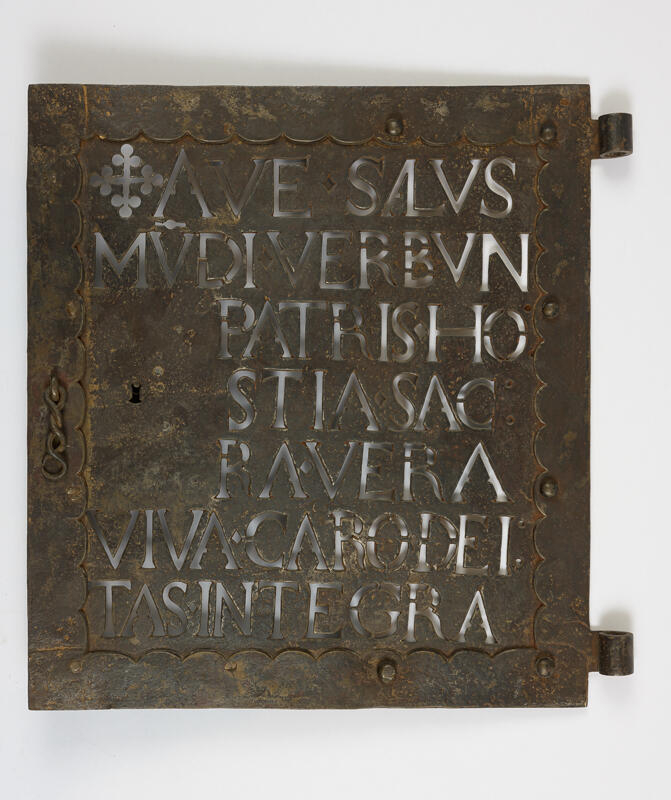 ✤ AVE · SALVS
MV̄DI · VERBVN
PATRIS · HO
STIA · SAC
RA · VERA
VIVA · CARO · DEI ·
TAS · INTEGRA